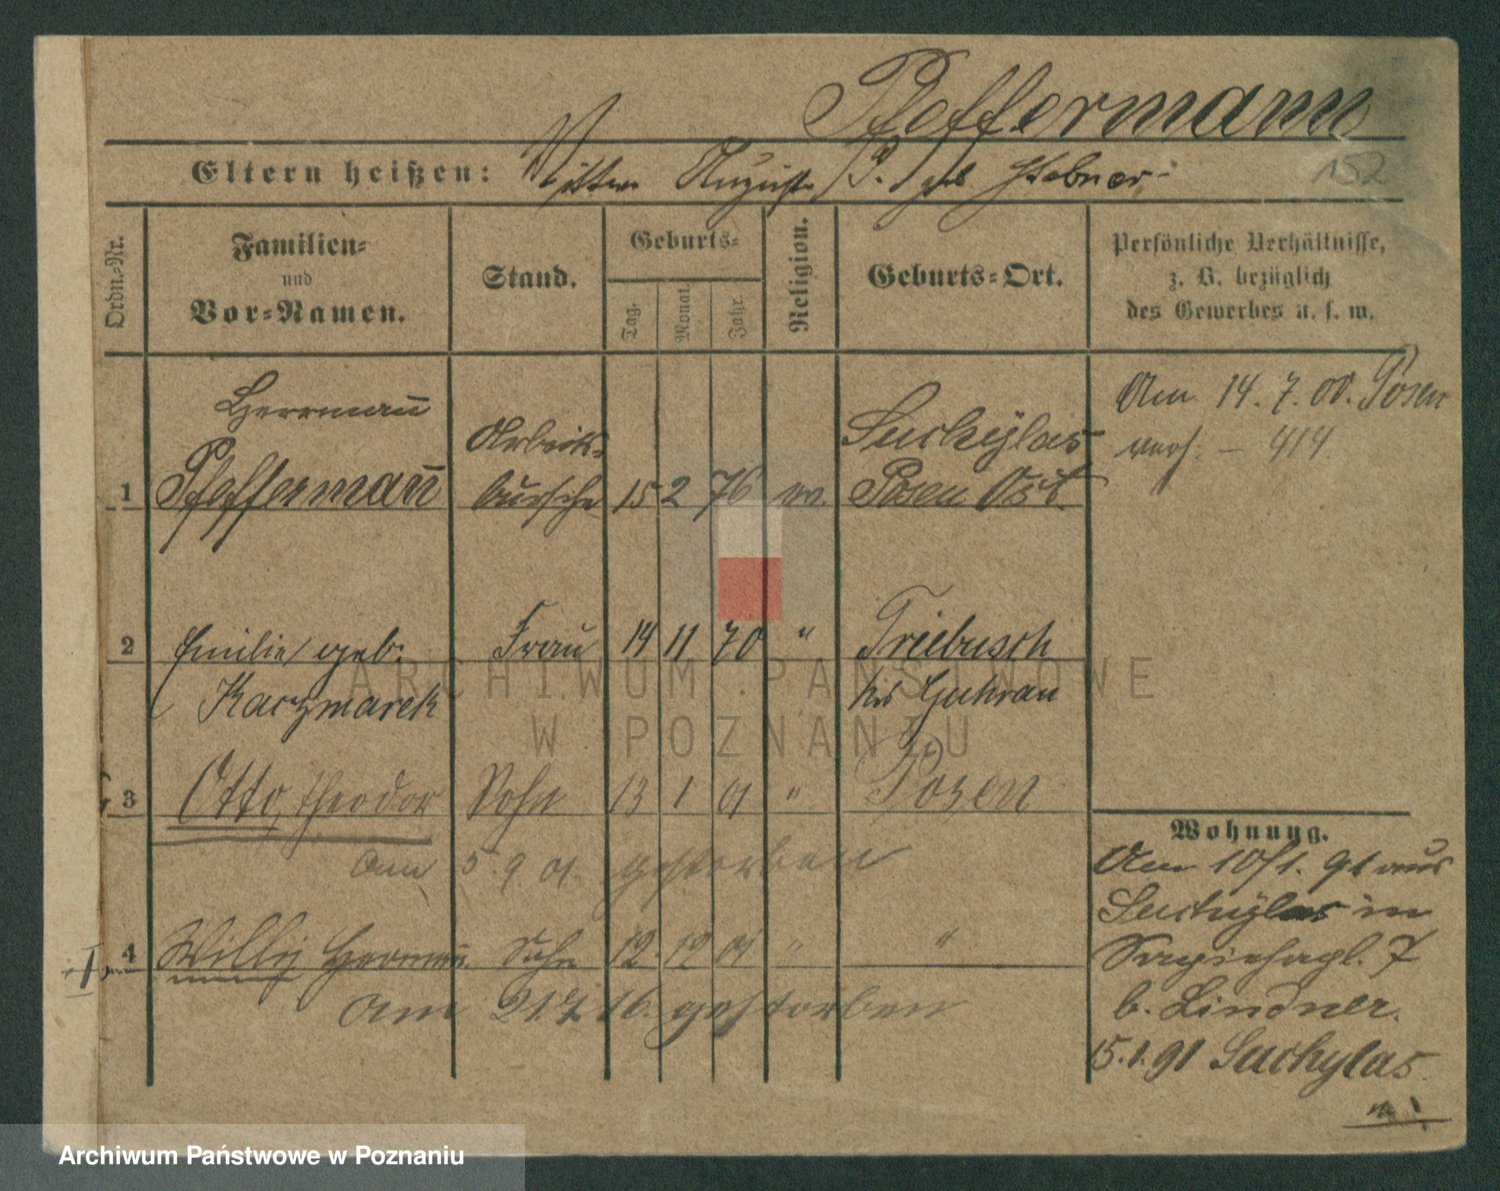 Pfeffermann
152
Eltern heißen: August P. geb
Ordn.-Nr.
Familien-
und
Vor-Namen.
Stand.
Geburts-
Tag.
Monat.
Jahr.
Religion.
Geburts-Ort.
Persönliche Verhältnisse,
z. B. bezüglich
des Gewerbes u. s. w.
Herrmañ
Arbeits-
Suchÿlas
Am 14. 7. 00. Posen
verh. – 414.
1 Pfeffermañ bursche 15 2 76 ev. Posen Ost.
2 Emilie geb. Frau 14 11 70 " Triebusch
Kaczmarek Krs Guhrau
3 Otto, Theodor Sohn 13 1 01 " Posen
Am 5. 9. 01. gestorben
4 Willy Sohn 12. 12 01 " "
am 16. gestorben
Wohnung.
Am 10/1. 91 aus
Suchÿlas in
7
b. Lindner.
15.1.91 Suchylas
ARCHIWUM PAŃSTWOWE
W POZNANIU
Archiwum Państwowe w Poznaniu